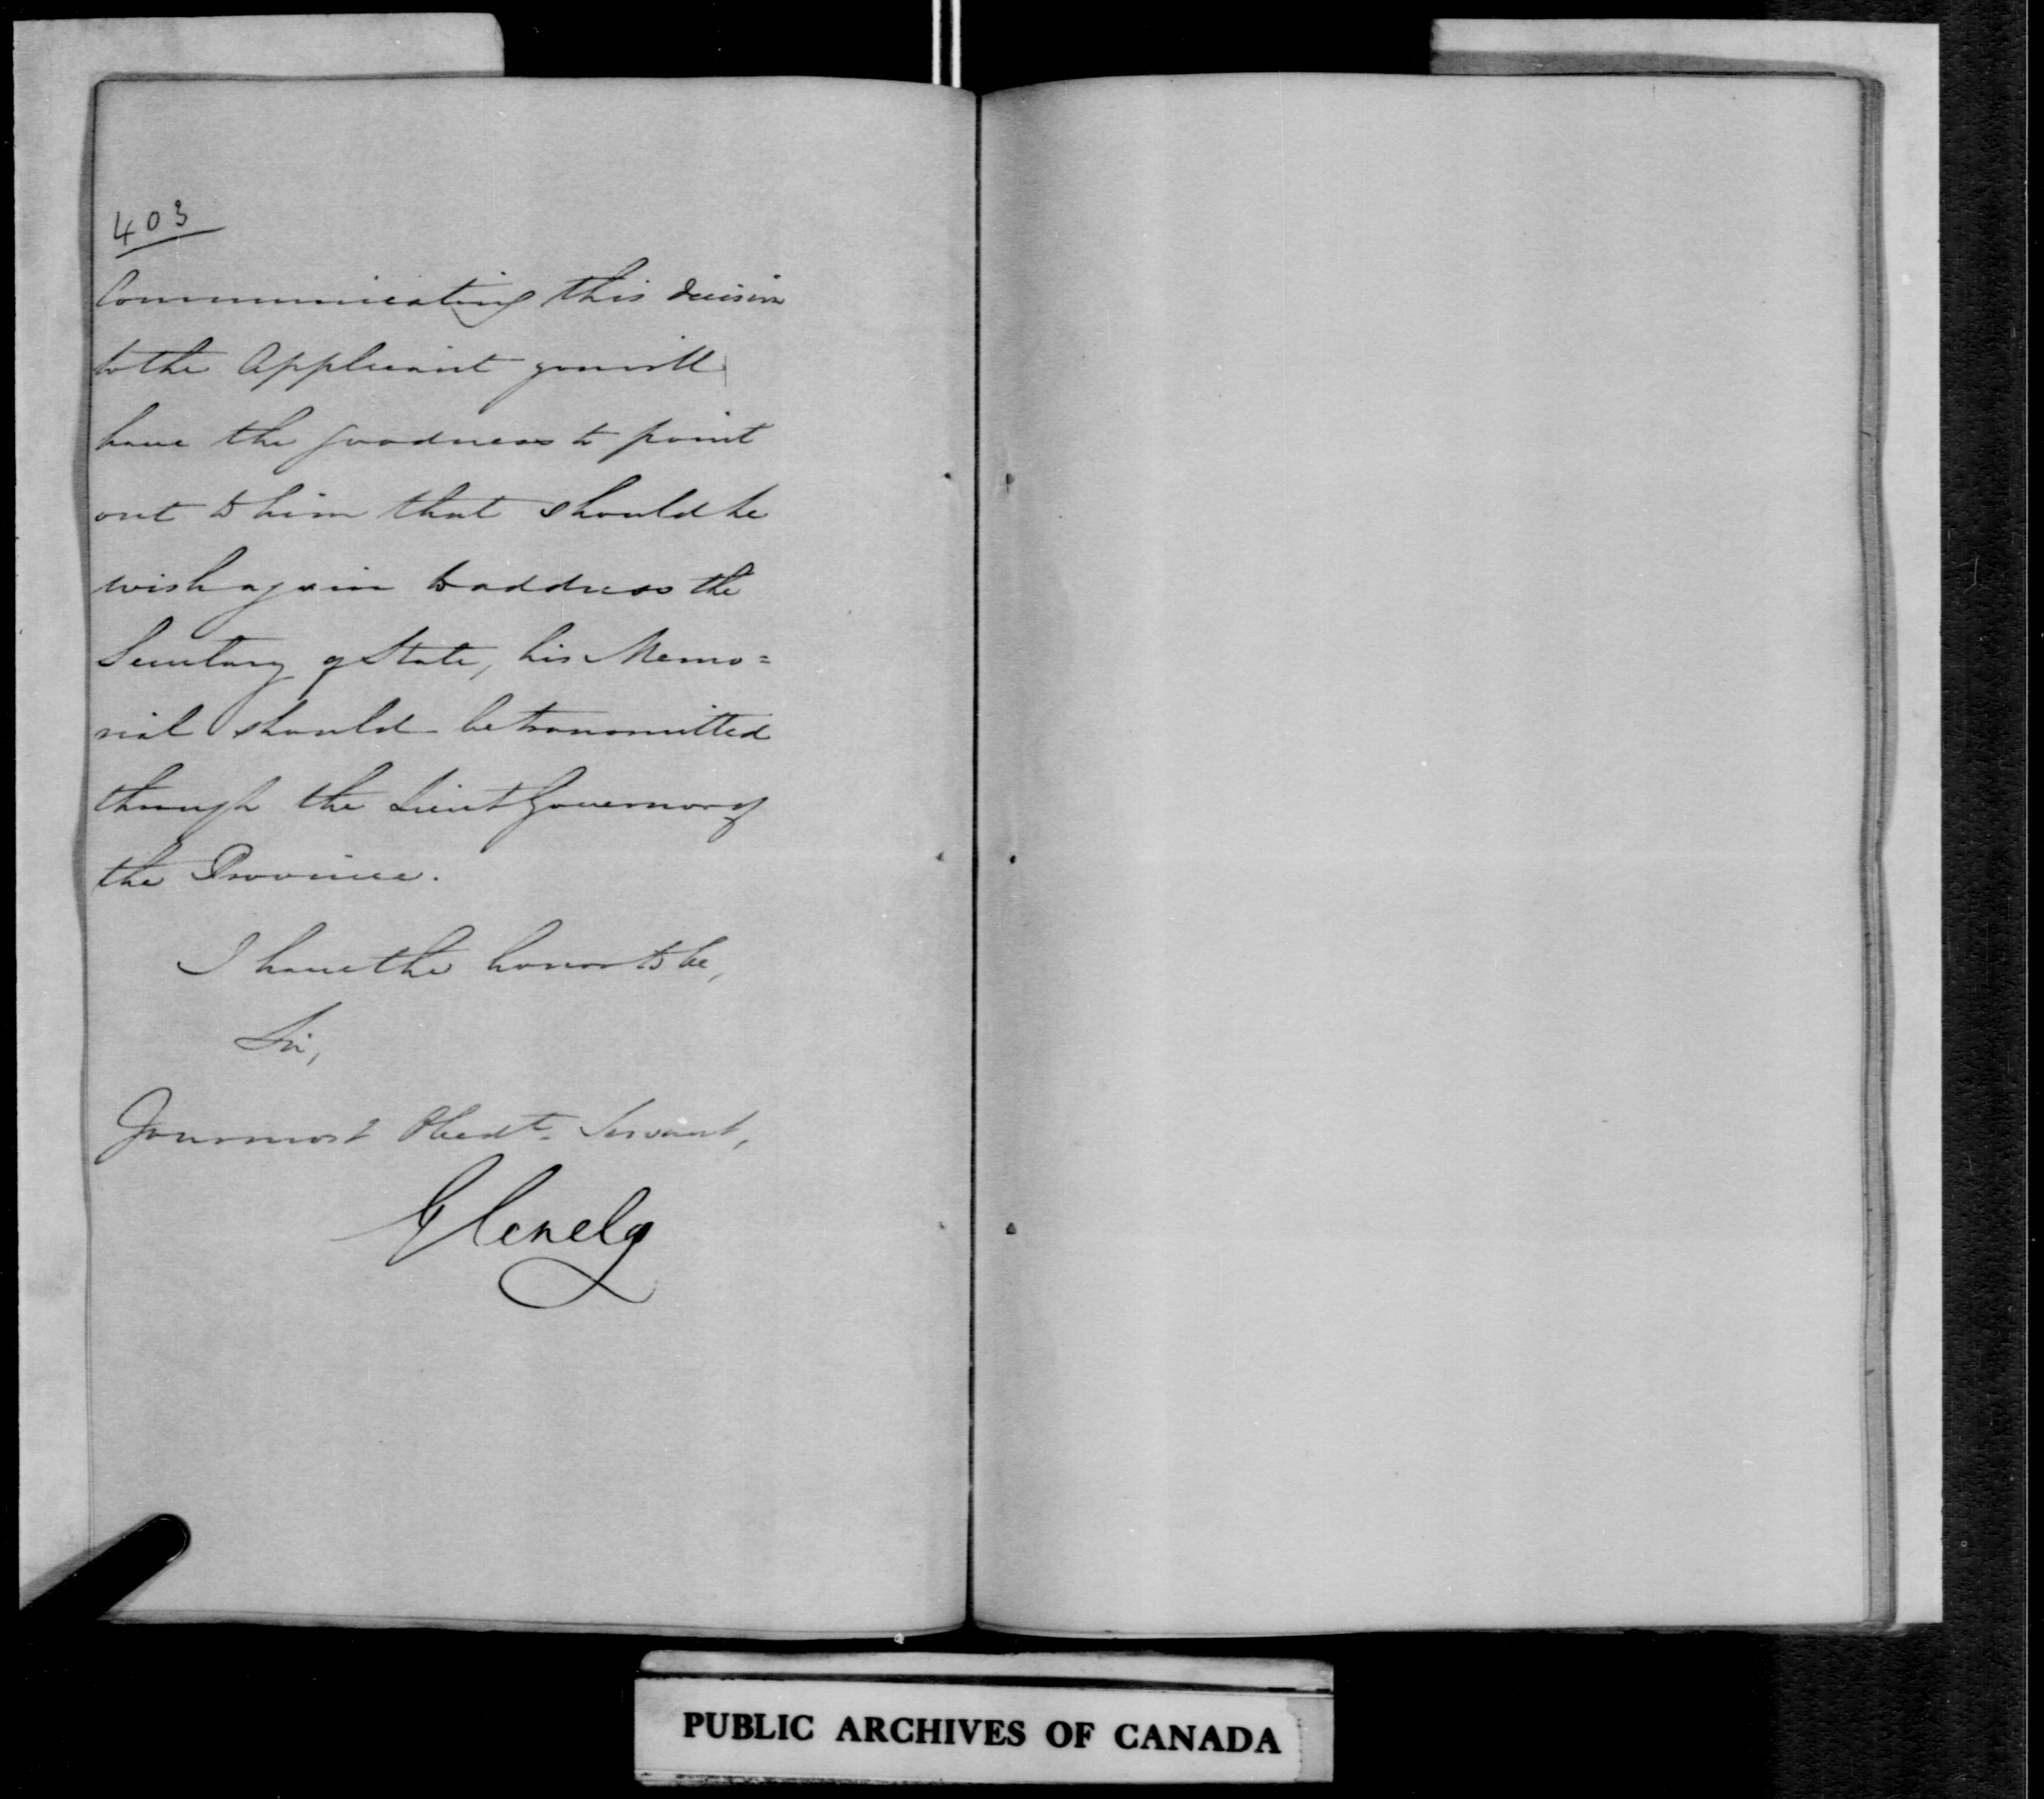 403
Communicating this decision
to the Applicant you will
have the goodness to point
out to him that should he
wish again to address the
Secretary of State, his Memo=
rial should be transmitted
through the Lieut Governor of
the Province.
I have the honor to be,
Sir,
Your most Obedt. Servant,
Glenelg
PUBLIC ARCHIVES OF CANADA